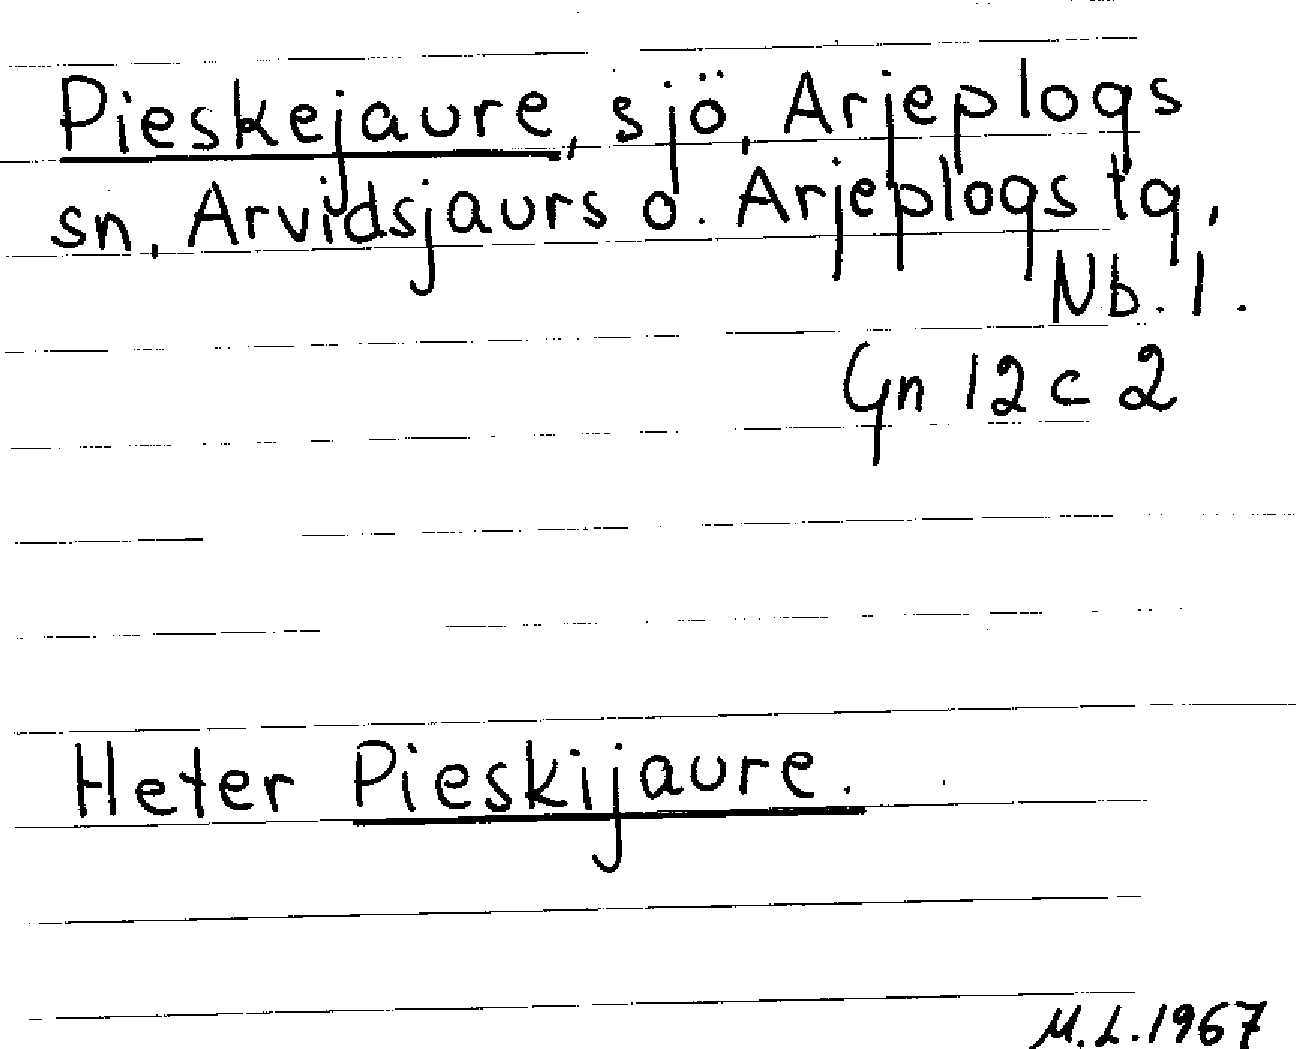 Pieskejaure, sjö, Arjeplogs
sn, Arvidsjaurs o. Arjeplogs tg,
Nb. l.
Gn 12 c 2
Heter Pieskijaure.
M.L.1967